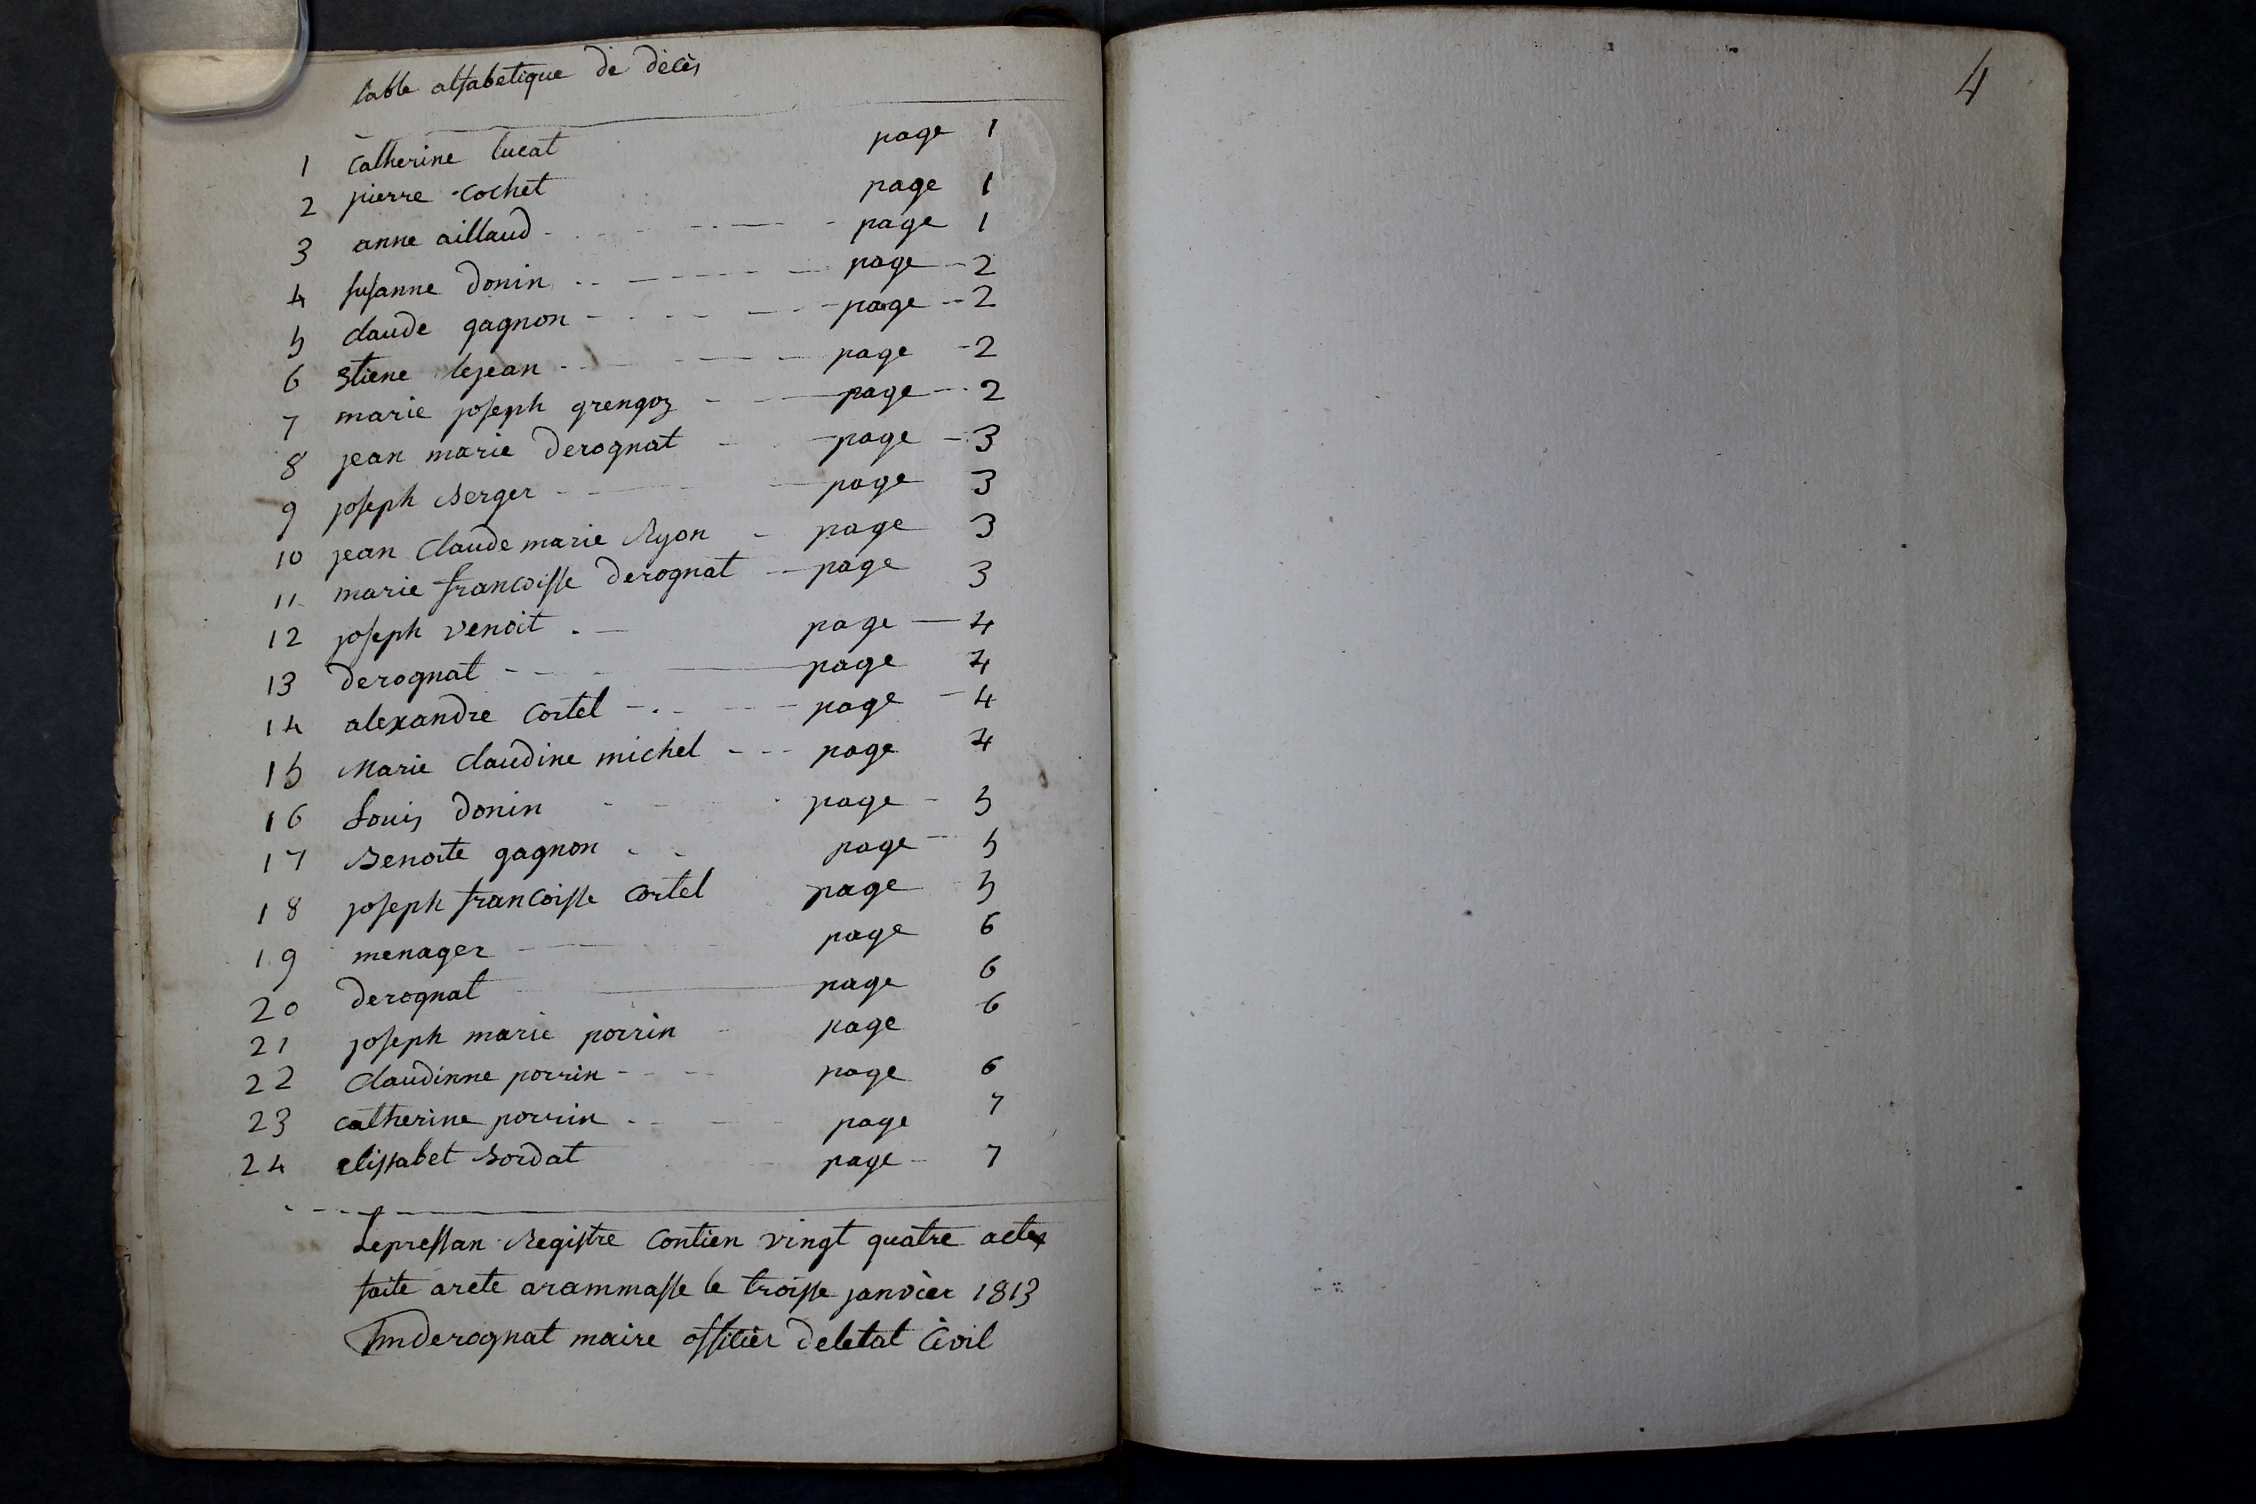 table alfabetique dè dècès
1 catherine lucat page 1
2 pierre cochet page 1
3 anne aillaud page 1
4 susanne donin page 2
5 claude gagnon page 2
6 Etiene lejean page 2
7 marie joseph grengoz page 2
8 jean marie derognat page 3
9 joseph Berger page 3
10 jean claude marie Ryon page 3
11 marie francoisse derognat page 3
12 joseph venoit page 4
13 derognat page 4
14 alexandre cortel page 4
15 Marie claudine michel page 4
16 Louis donin page 5
17 Benoite gagnon page 5
18 joseph francoisse cortel page 5
19 menager page 6
20 derognat page 6
21 joseph marie porrin page 6
22 claudinne porrin page 6
23 catherine porrin page 7
24 elissabet Bordat page 7
Lepressan Registre contien vingt quatre actes
faite arete arammasse le troisse janvièr 1813
derognat maire offilièr deletat Civil
4